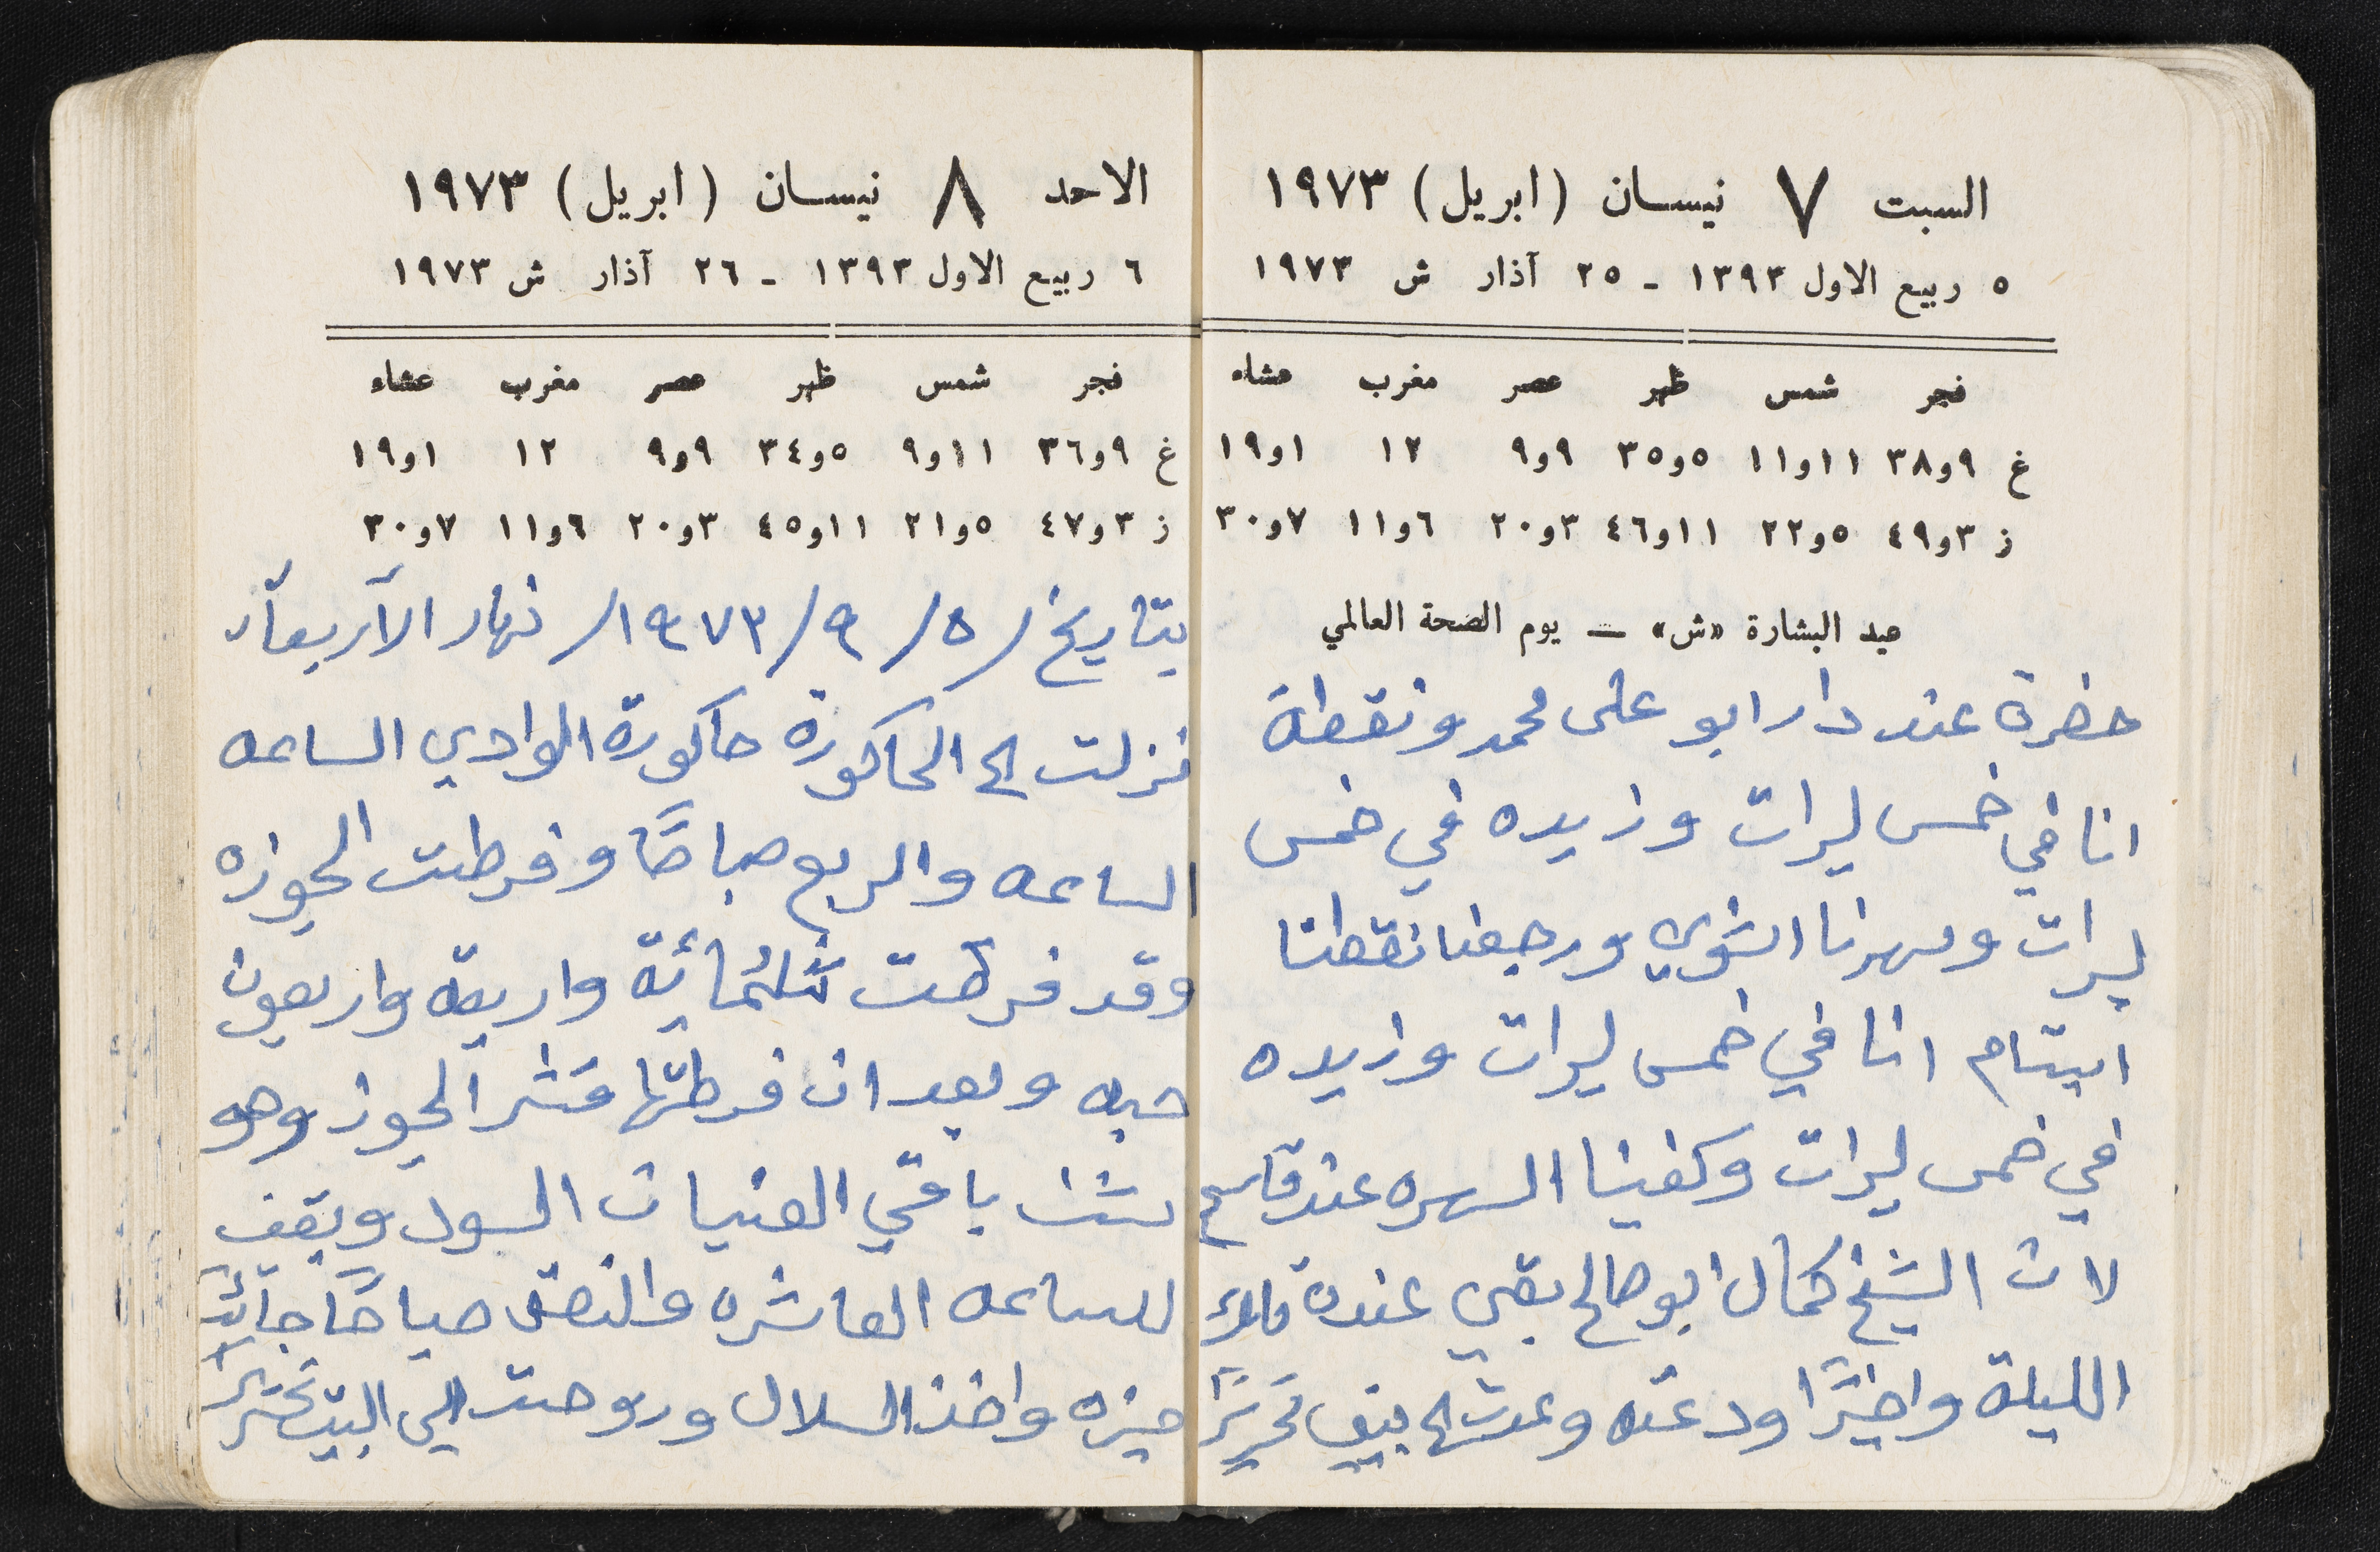 السبت ٧ نيسان (ابريل) ١٩٧٣
٥ ربيع الاول ١٣٩٣ - ٢٥ آذار ش ١٩٧٣
فجر شمس ظهر عصر مغرب عشاء
غ ٩و٣٨ ١١و١١ ٥و٣٥ ٩و٩ ١٢ ١و١٩
ز ٣و٤٩ ٥و٢٢ ١١و٤٦ ٣و٢٠ ٦و١١ ٧و٣٠
عيد البشارة «ش» — يوم الصحة العالمي
حضرة عند دار ابو على محمد ونقطة
انا في خمس ليرات وزيده في خمس
ليرات وسهرنا اشوي ورجعنا نقطنا
ابتسام انا في خمس ليرات وزيده
في خمس ليرات وكفينا السهره عند قاسم
لان الشيخ كمال ابو صالح بقي عنده
الليلة واخيرًا ودعته وعدت الى بيتي تحريرًا
الاحد ٨ نيسان (ابريل) ١٩٧٣
٦ ربيع الاول ١٣٩٣ - ٢٦ آذار ش ١٩٧٣
فجر شمس ظهر عصر مغرب عشاء
غ ٩و٣٦ ١١و٩ ٥و٣٤ ٩و٩ ١٢ ١و١٩
ز ٣و٤٧ ٥و٢١ ١١و٤٥ ٣و٢٠ ٦و١١ ٧و٣٠
بتاريخ /٥/ ٩/ ١٩٧٣/ نهار الآربعآء
نزلت الى الحاكورة حاكورة الوادي الساعه
الساعه والربع صباحًا وفرطت الجوزه
وقد فرطت ثلثمائة واربعة واربعون
حبه وبعد ان فرطتها قشر الجوز وهو
باقي العنيات السود وبقيت
للساعه العاشره والنصف صباحًا
واخذ السلال وروحت الى البيت تحريرًا